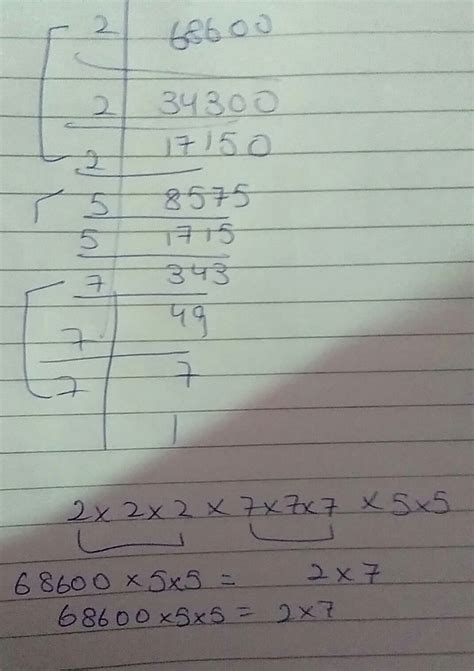 2 68600
2 34300
2 17150
5 8575
5 1715
7 343
7 49
7 7
1
2 x 2 x 2 x 7 x 7 x 7 x 5 x 5
68600 x 5 x 5 = 2 x 7
68600 x 5 x 5 = 2 x 7